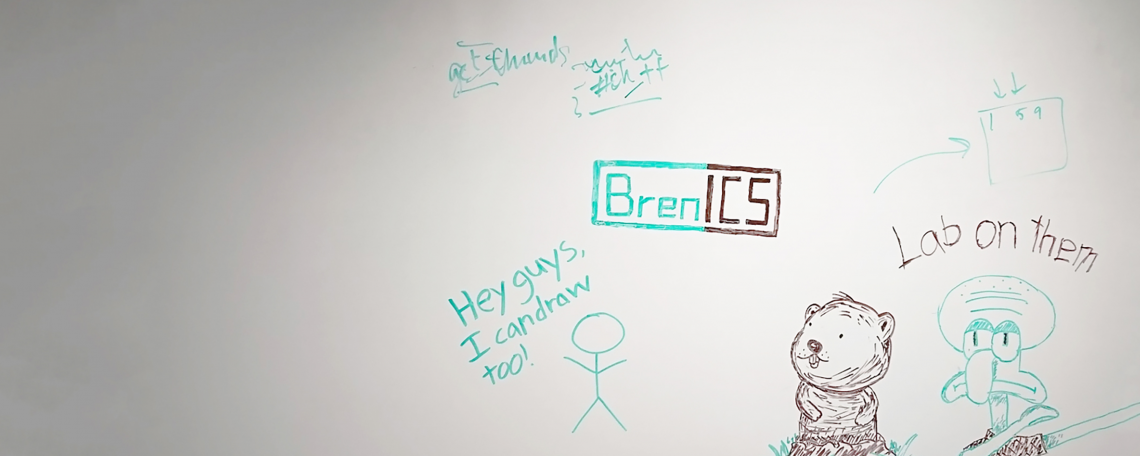 1 59
BrenICS
Lab on them
Hey guys,
I can draw
too!